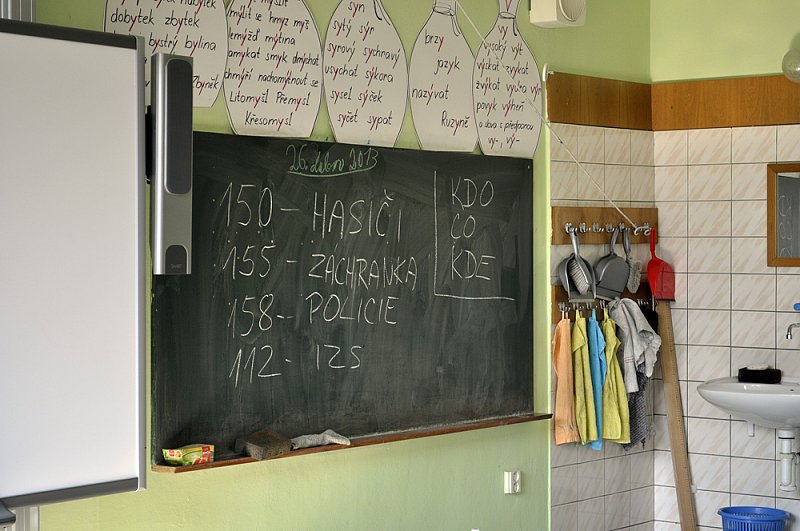 dobytek zbytek
bystrý bylina
mýlit se hmyz myš
hmyzí mýtina
smyk
chmýří nachomýtnout se
Litomyšl Přemysl
Křesomysl
syn sytý sýr
syrový sychravý
usychat sýkora
sysel sýček
syčet sypat
brzy
jazyk
nazývat
Ruzyně
vysoký výt
výskat zvykat
žvýkat vydra výr
povyk výheň
a slova s předponou
vy-, vý-
26. dubna 2013
150 - HASIČI
155 - ZÁCHRANKA
158 - POLICIE
112 - IZS
KDO
CO
KDE